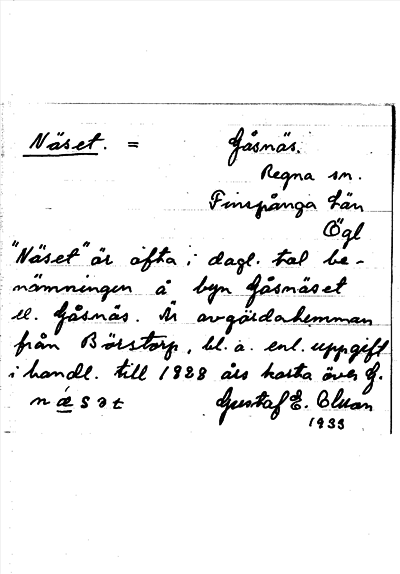 Näset. = Gåsnäs.
Regna sn.
Finspånga län
Ögl
"Näset" är ofta i dagl. tal be-
nämningen å byn Gåsnäset
el. Gåsnäs. Är avgärdahemman
från Börstorp, bl. a. enl. uppgift
i handl. till 1828 års karta över G.
nǽsət Gustaf E.
1933